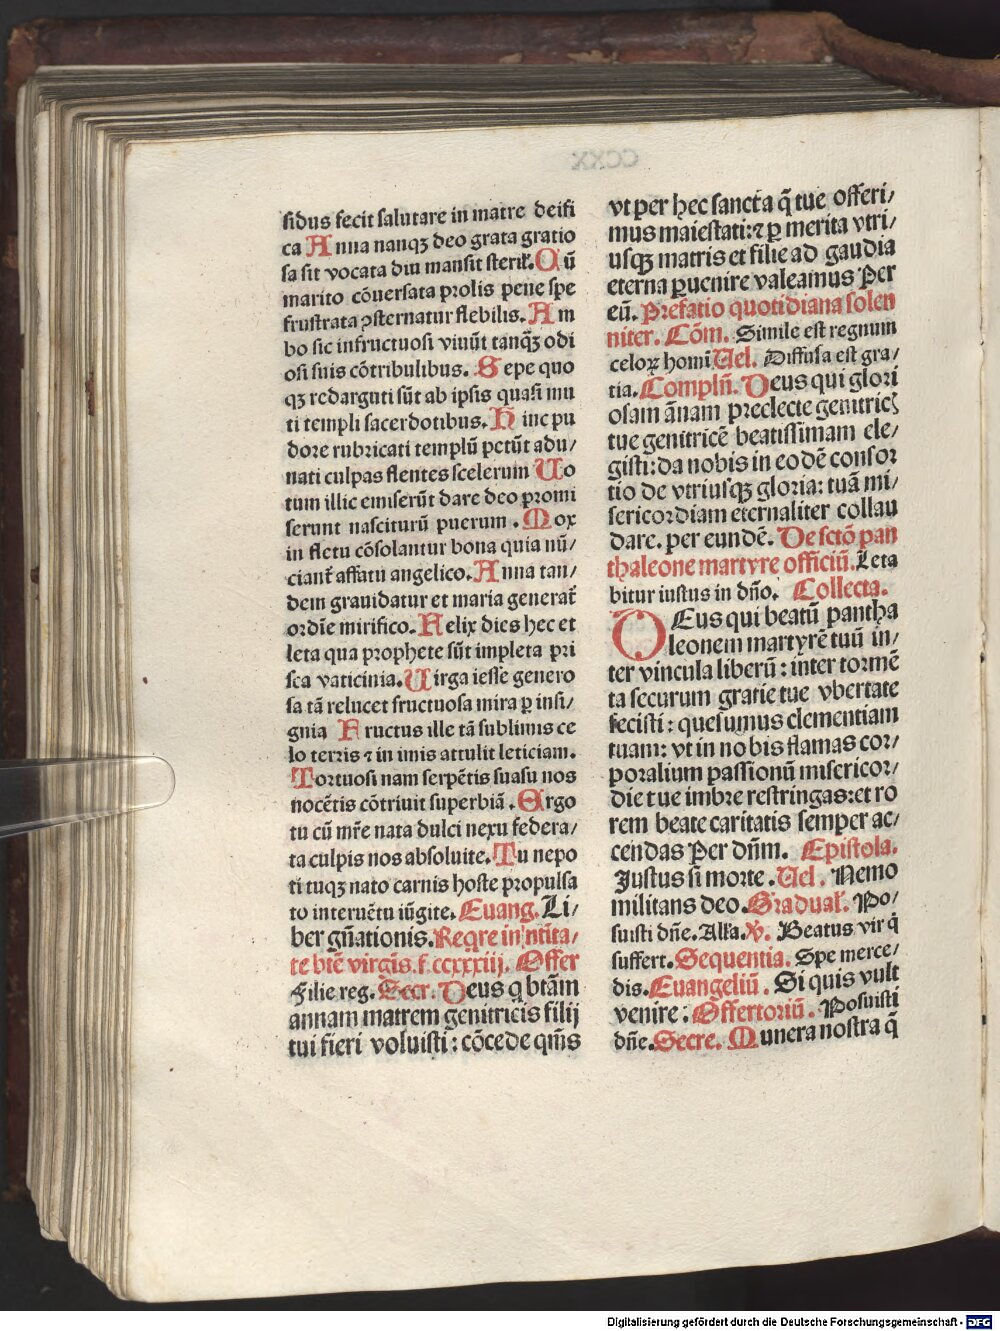 sidus fecit salutare in matre deifi
ca Anna nanqȝ deo grata gratio
sa sit vocata diu mansit steril̛. Cū
marito cōuersata prolis pene spe
frustrata ꝯsternatur flebilis. Am
bo sic infructuosi viuūt tanqȝ odi
osi suis cōtribulibus. Sepe quo
qȝ redarguti sūt ab ipsis quasi mu
ti templi sacerdotibus. Hinc pu
dore rubricati templū petūt adu/
nati culpas flentes scelerum Uo
tum illic emiserūt dare deo promi
serunt nasciturū puerum. Mox
in fletu cōsolantur bona quia nū/
ciant̄ affatu angelico. Anna tan/
dem grauidatur et maria generat̄
ordīe mirifico. Felix dies hec et
leta qua prophete sūt impleta pri
sca vaticinia. Uirga iesse genero
sa tā relucet fructuosa mira ꝑ insi/
gnia Fructus ille tā sublimis ce
lo terris ⁊ in imis attulit leticiam.
Tortuosi nam serpētis suasu nos
nocētis cōtriuit superbiā. Ergo
tu cū mr̄e nata dulci nexu federa/
ta culpis nos absoluite. Tu nepo
ti tuqȝ nato carnis hoste propulsa
to interuētu iūgite. Euang. Li/
ber gn̄ationis. Reqre in ntīta/
te btē virgīs. f. ccxxxiij. Offer
Filie reg. Secr. Deus q btām
annam matrem genitricis filij
tui fieri voluisti: cōcede qm̄s
vt per hec sancta q̄ tue offeri/
mus maiestati: ⁊ ꝑ merita vtri/
usqȝ matris et filie ad gaudia
eterna ꝑuenire valeamus Per
eū. Prefatio quotidiana solen
niter. Cōm. Simile est regnum
celoꝝ homī Uel. Diffusa est gra/
tia. Complēn̄. Deus qui glori
osam ānam preelecte genitrics
tue genitricē beatissimam ele/
gisti: da nobis in eodē consor
tio de vtriusqȝ gloria: tuā mi/
sericordiam eternaliter collau
dare. per eundē. De sctō pan
thaleone martyre officiū. Leta
bitur iustus in dn̄o. Collecta.
DEus qui beatū pantha
leonem martyrē tuū in/
ter vincula liberū: inter tormē
ta securum gratie tue vbertate
fecisti: quesumus clementiam
tuam: vt in nobis flamas cor/
poralium passionū misericor/
die tue imbre restringas: et ro
rem beate caritatis semper ac/
cendas Per dn̄m. Epistola.
Justus si morte. Uel. Nemo
militans deo. Gradual̛. Po/
suisti dn̄e. Alla. ꝟ. Beatus vir q̇
suffert. Sequentia. Spe merce/
dis. Euangeliū. Si quis vult
venire. Offertoriū. Posuisti
dn̄e. Secre. Munera nostra q̄
CCXX
Digitalisierung gefördert durch die Deutsche Forschungsgemeinschaft - DFG